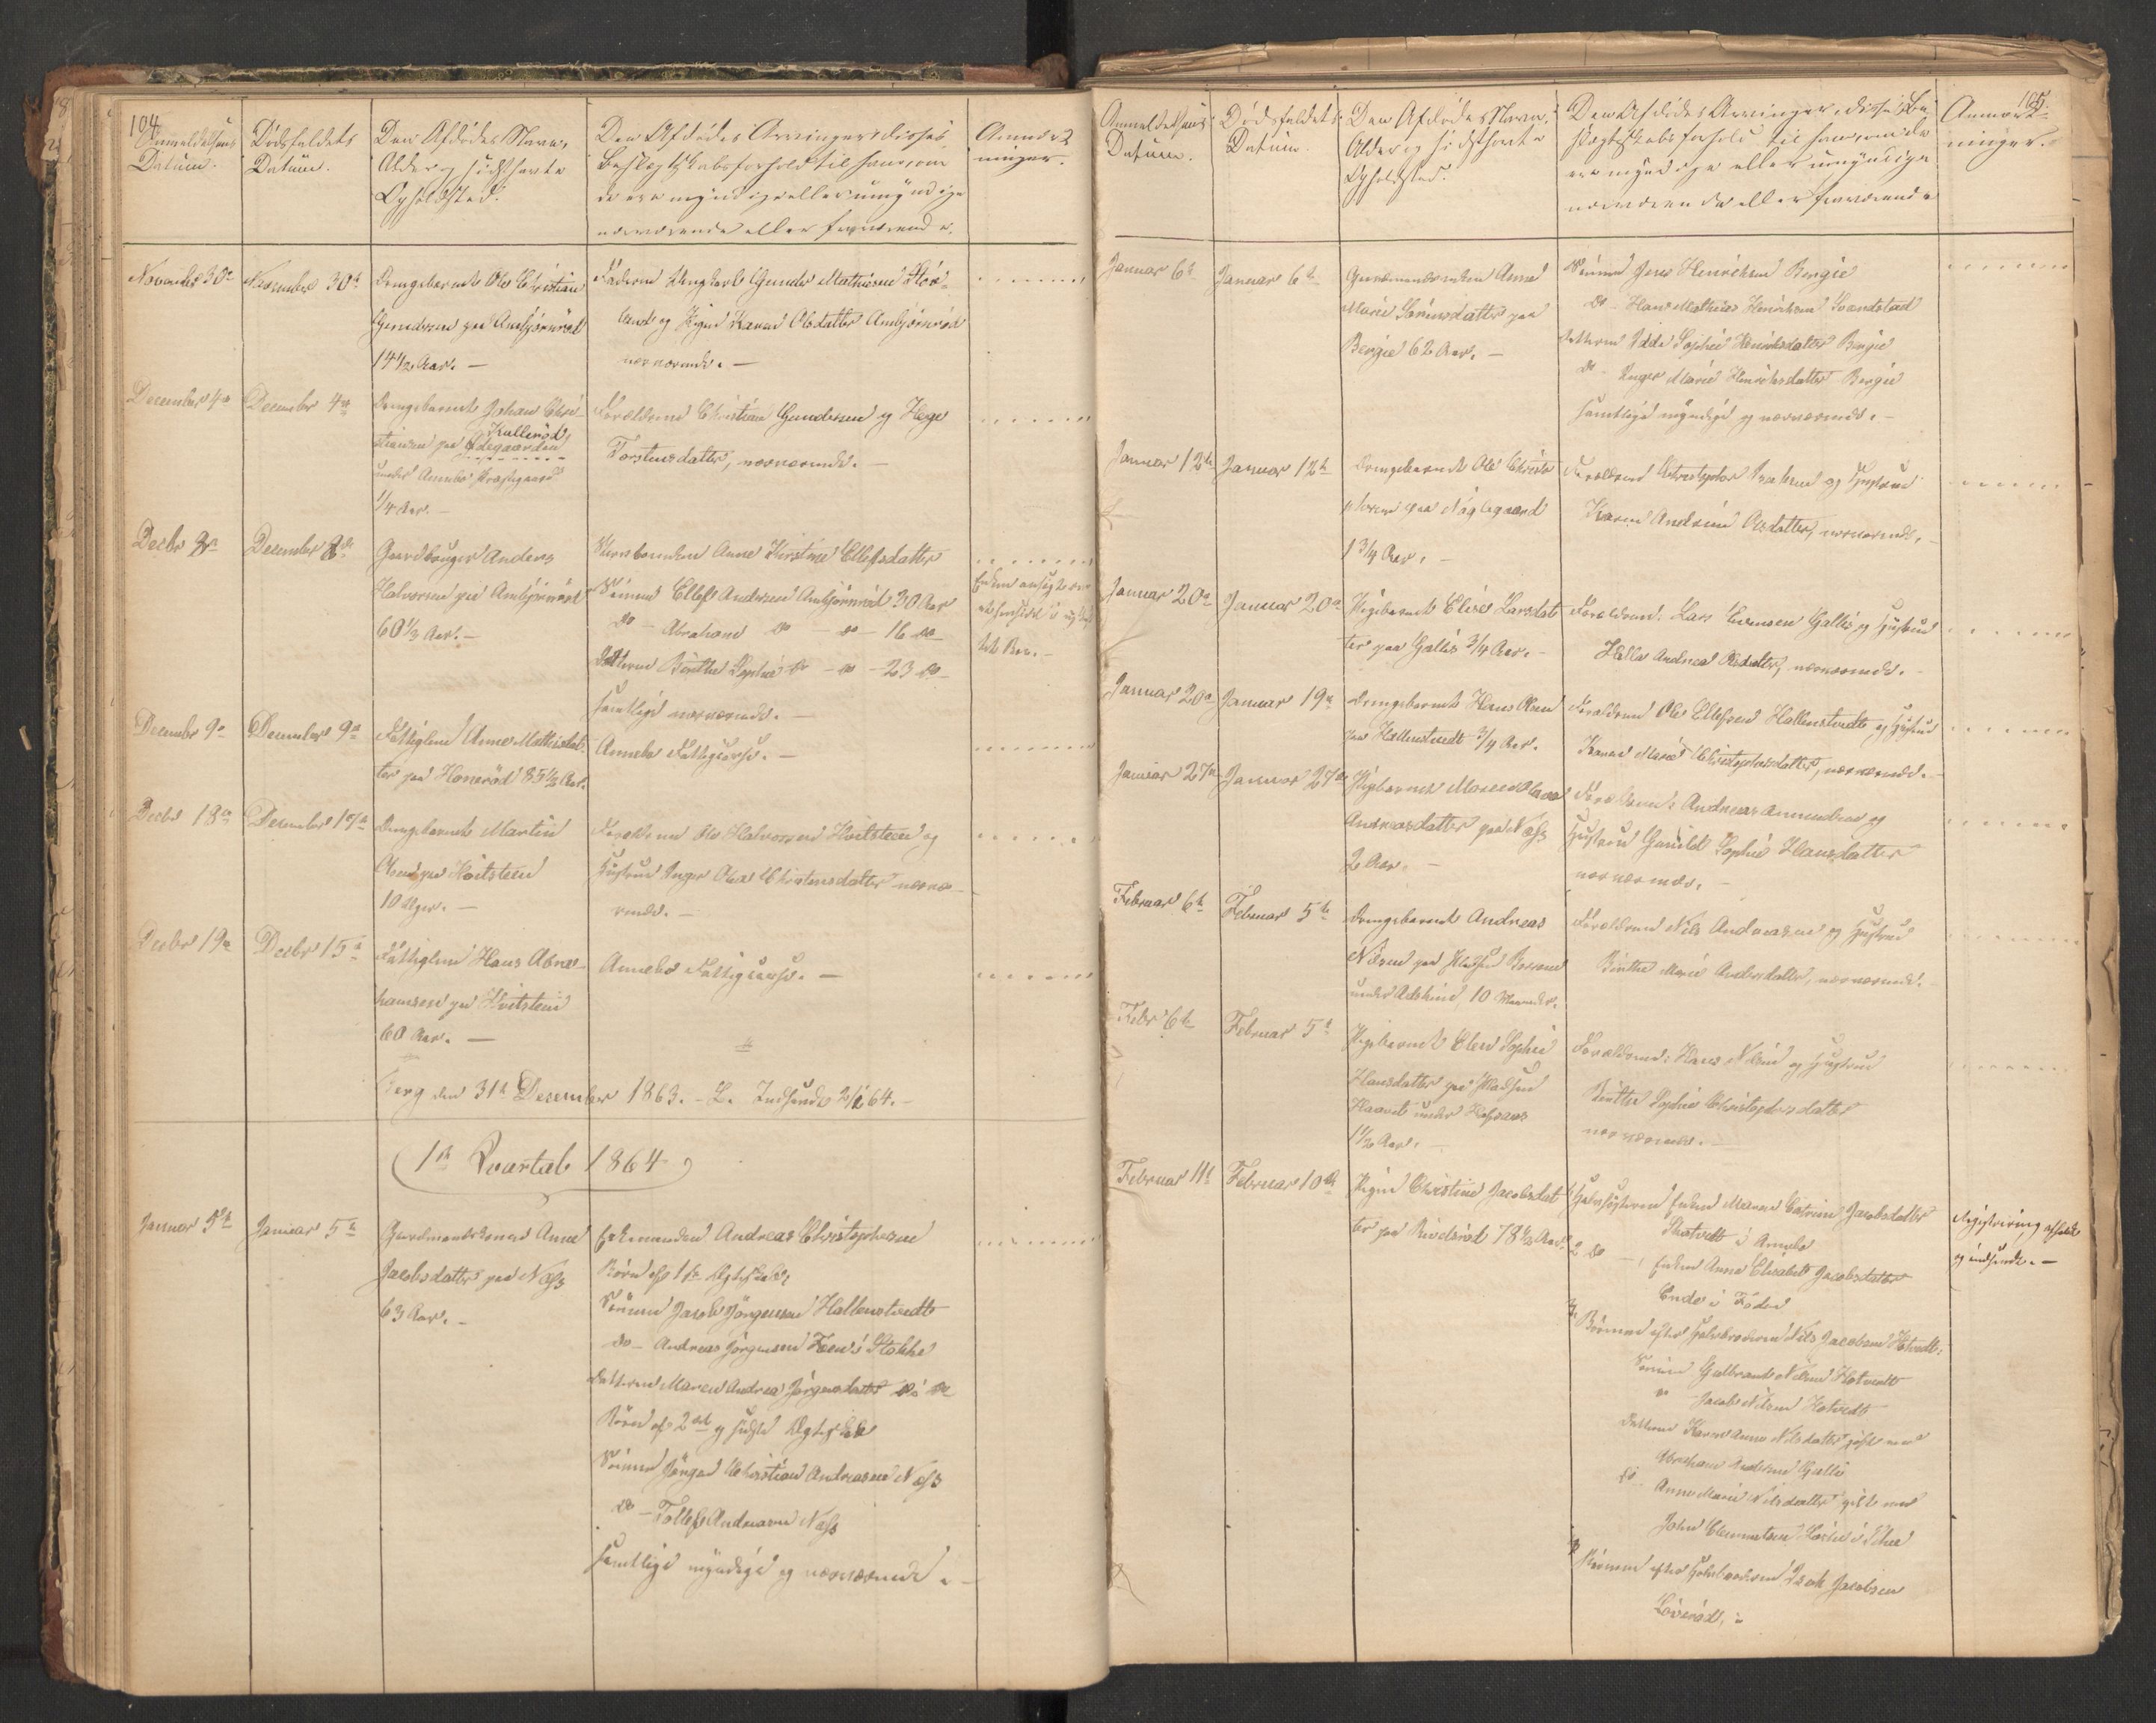 104
Anmeldelsens
Datum.
Dødsfaldets
Datum.
Den Afdødes Navn,
Alder og sidst havte
Opholdsted.
Den Afdødes Arvinger, disses
Beslægtskabsforhold til ham, om
de ere myndige eller umyndige
nærværende eller fraværende.
Anmærk-
ninger.
November 30te
November 30te
Drengebarnet Ole Christian
Gundersen paa Ambjörnröd
14 1/2 Aar. —
Faderen Ungkarl Gunder Mathisen
og Pigen Karen Olsdatter Ambjörnröd
nærværende. —
December 4de
December 4de
Drengebarnet Johan Chri-
stiansen paa Ödegaarden
Kulleröd
under Annebo Præstegaard
1/4 Aar. —
Forældrene Christian Gundersen og Hege
Torstensdatter, nærværende. —
Decbr
December
Gaardbruger Anders
Halvorsen paa Ambjörnröd
60 1/3 Aar. —
Anne Kirstine Ellefsdatter
Sönnen Ellef Andersen Ambjörnröd 30 Aar
do — Abraham do — do — 16 do —
Datteren Birthe Sophie do — do — 23 do —
samtlige nærværende. —
Enken
December 9de
December 9de
Fattiglem Anne Mathisdat-
ter paa Honeröd 85 1/2 Aar.
Annebo Fattigkasse. —
Decbr 18de
December 17de
Drengebarnet Martin
Olsen paa Hvitsteen
10 Uger. —
Forældrene Ole Halvorsen Hvitsteen og
Hustrue Inger Olea Christensdatter nærvæ-
rende. —
Decbr 19de
Decbr 15de
Fattiglem Hans Abra-
hamsen paa Hvitsteen
60 Aar. —
Annebo Fattigkasse. —
Berg den 31te December 1863. — L. Indsendt 2/1 64. —
1ste Qvartal 1864
Januar 5te
Januar 5te
Gaardmandskonen Anne
Jacobsdatter paa Næss
63 Aar. —
Enkemanden Andreas Christophersen
Börn af 1ste Ægteskab:
Sönnen Jacob Jörgensen Hallenstvedt
do — Andreas Jörgensen Foen i Stokke
Datteren Maren Andrea Jörgensdatter do i do
Börn af 2det og sidste Ægteskab
Sönnen Jörgen Christian Andreasen Næss
do — Tollef Andreasen Næss
samtlige myndige og nærværende. —
105.
Anmeldelsens
Datum.
Dødsfaldets
Datum.
Den Afdødes Navn,
Alder og sidsthavte
Opholdsted.
Den Afdødes Arvinger, disses Be-
slægtskabsforhold til ham, om de
ere myndige eller umyndige
nærværende eller fraværende
Anmærk-
ninger.
Januar 6te
Januar 6te
Gaardmandsenken Anne
Marie Sörensdatter paa
Bergie 62 Aar. —
Sönnen Jens Henriksen Bergie
do — Hans Mathias Henriksen Svendstad
Datteren Idde Sophie Henriksdatter Bergie
do — Inger Marie Henriksdatter Bergie
samtlige myndige og nærværende. —
Januar 12te
Januar 12te
Drengebarnet Ole Christo-
phersen paa Nøglegaard
1 3/4 Aar. —
Forældrene Christopher Isaksen og Hustrue
Karen Andrine Olsdatter, nærværende. —
Januar 20de
Januar 20de
Pigebarnet Elise Larsdat-
ter paa Gallis 3/4 Aar. —
Forældrene: Lars Evensen Gallis og Hustrue
Hella Andrea Olsdatter, nærværende. —
Januar 20de
Januar 19de
Drengebarnet Hans Olsen
paa Hallenstvedt 3/4 Aar.
Forældrene Ole Ellefsen Hallenstvedt og Hustrue
Karen Marie Christophersdatter, nærværende. —
Januar 27de
Januar 27de
Pigebarnet Maren Olava
Andreasdatter paa Næss
2 Aar. —
Forældrene: Andreas Amundsen og
Hustrue Gunild Sophie Hansdatter
nærværende. —
Februar 6te
Februar 5te
Drengebarnet Andreas
Nilsen paa Pladsen
under Adskin, 10 Maaneder.
Forældrene Nils Andreasen og Hustrue
Birthe Marie Andersdatter, nærværende.
Febr 6te
Februar 5te
Pigebarnet Elen Sophie
Hansdatter paa Pladsen
under
1 1/2 Aar. —
Forældrene: Hans Nilsen og Hustrue
Birthe Sophie Christophersdatter
nærværende. —
Februar 11te
Februar 10de
Pigen Christine Jacobsdat-
ter paa 78 1/2 Aar.
Halvsösteren Enken Maren Cathrine Jacobsdatter
i Annebo
2 do — Enken Anne Elisabet Jacobsdatter
Ende i
3. Börnene efter Halvbroderen Nils Jacobsen Hotvedt:
Sönnen Gulbrand Nilsen Hotvedt
do Jacob Nilsen Hotvedt
Datteren Karen Anne Nilsdatter gift med
Abraham Andersen Gallis
do Anne Marie Nilsdatter gift med
John Clemmetsen
Börnene efter Halvbroderen Isak Jacobsen
Löveröd. —
Registrering afholdt
og indsendt. —